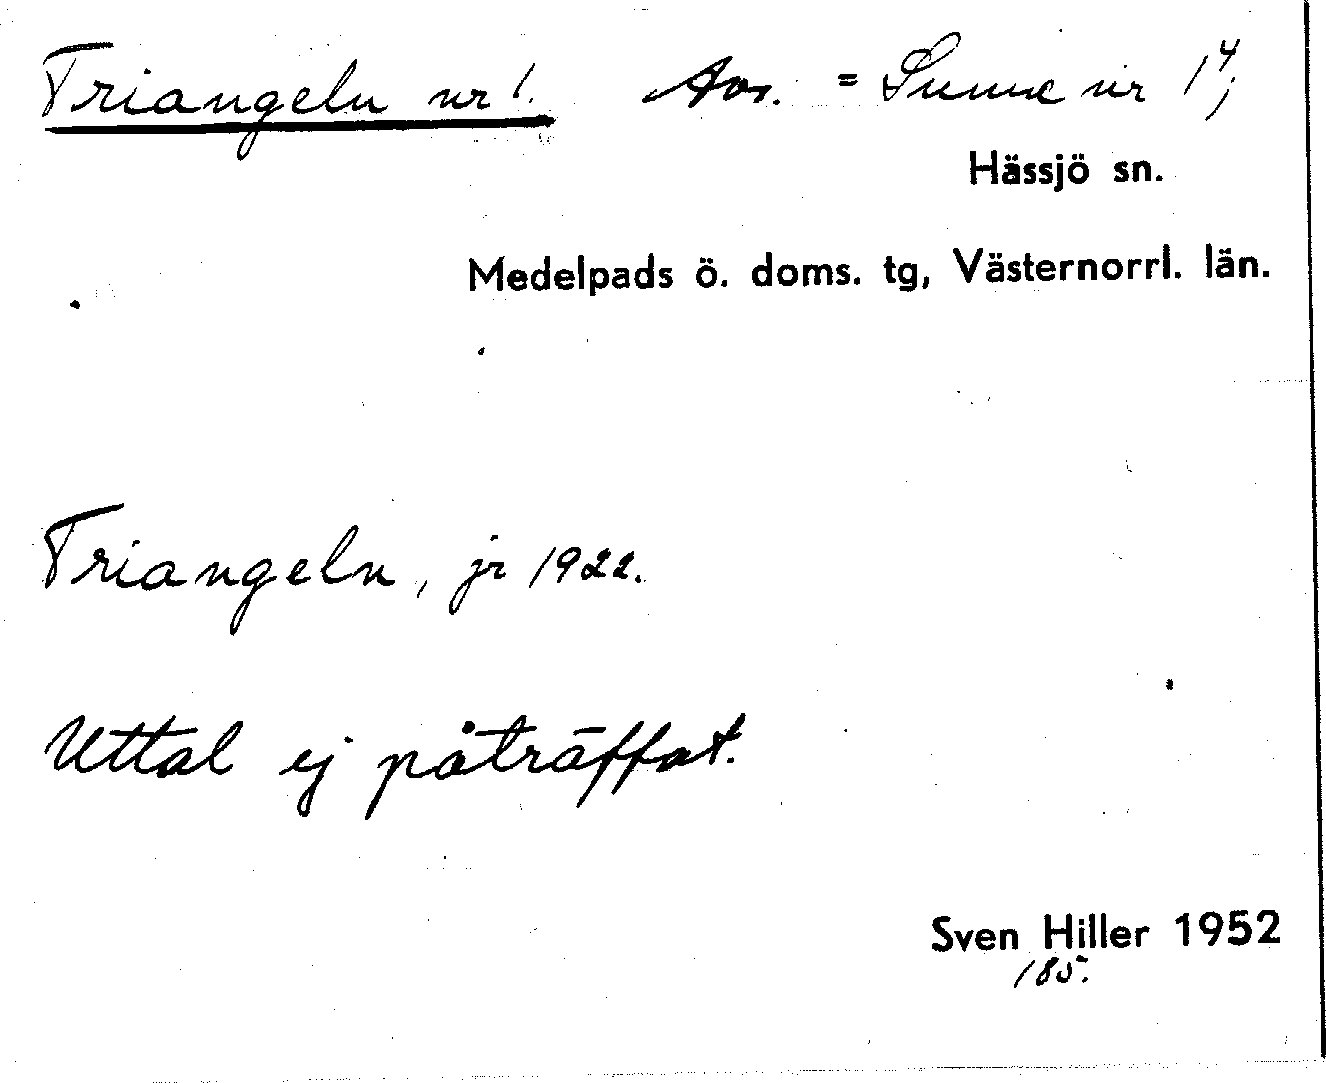 Triangeln nr 1. Avs. = Sunne nr 1⁴;
Hässjö sn.
Medelpads ö. doms. tg, Västernorrl. län.
Triangeln, jr 1922.
Uttal ej påträffat.
Sven Hiller 1952
185.